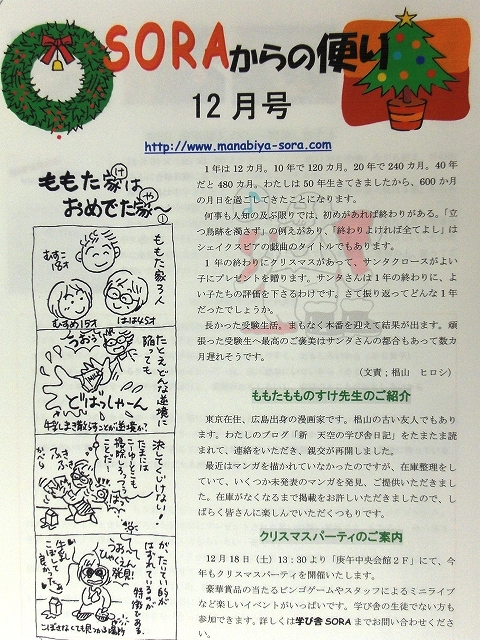 SORAからの便り
12月号
http://www.manabiya-sora.com
1年は12カ月。10年で120カ月。20年で240カ月。40年
だと480カ月。わたしは50年生きてきましたから、600か月
の月日を過ごしてきたことになります。
何事も人知の及ぶ限りでは、初めがあれば終わりがある。「立
つ鳥跡を濁さず」の例えがあり、「終わりよければ全てよし」は
シェイクスピアの戯曲のタイトルでもあります。
1年の終わりにクリスマスがあって、サンタクロースがよい
子にプレゼントを贈ります。サンタさんは1年の終わりに、よ
い子たちの評価を下さるわけです。さて振り返ってどんな1年
だったでしょうか。
長かった受験生活。まもなく本番を迎えて結果が出ます。頑
張った受験生へ最高のご褒美はサンタさんの都合もあって数カ
月遅れそうです。
(文責;椙山 ヒロシ)
ももたもものすけ先生のご紹介
東京在住、広島出身の漫画家です。椙山の古い友人でもあり
ます。わたしのブログ「新 天空の学び舎日記」をたまたま読
まれて、連絡をいただき、親交が再開しました。
最近はマンガを描かれていなかったのですが、在庫整理をし
ていて、いくつか未発表のマンガを発見、ご提供いただきまし
た。在庫がなくなるまで掲載をお許しいただきましたので、し
ばらく皆さんに楽しんでいただくつもりです。
クリスマスパーティのご案内
12月18日(土)13:30より「庚午中央会館2F」にて、今
年もクリスマスパーティを開催いたします。
豪華賞品の当たるビンゴゲームやスタッフによるミニライブ
など楽しいイベントがいっぱいです。学び舎の生徒でない方も
参加できます。詳しくは学び舎SORAまでお問い合わせくださ
い。
ももた家は
け
おめでた家〜
や
①
ももた家3人
むすこ18才
むすめ15才
はは45才
たとえどんな逆境に
陥っても
うおぉ
どばっしゃーん
牛乳まき散らすことが逆境か?
決してくじけない!
たまには
こーゆとこも
掃除しろって
ことだー
ふき
ふき
がったいていは的が
はずれているのが
特徴である
うおー
ひゃくえん
発見!
牛乳
こぼして
良かったぁ
こぼさなくても見つかる場所